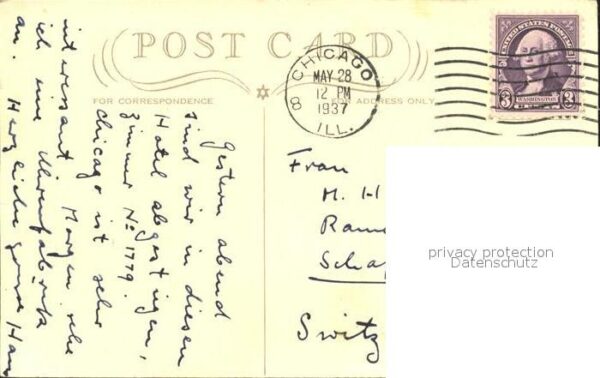 POST CARD
FOR CORRESPONDENCE
FOR ADDRESS ONLY
CHICAGO
MAY 28
12 PM
1937
8
ILL.
UNITED STATES POSTAGE
3 WASHINGTON 3
Gestern abend
sind wir in diesem
Hotel abgestiegen,
Zimmer No 1779.
Chicago ist sehr
interessant. Morgen sehe
ich eine Uhrenfabrik
an. Herzliche Han
Frau
M. H
Schaf
Switz
privacy protection
Datenschutz